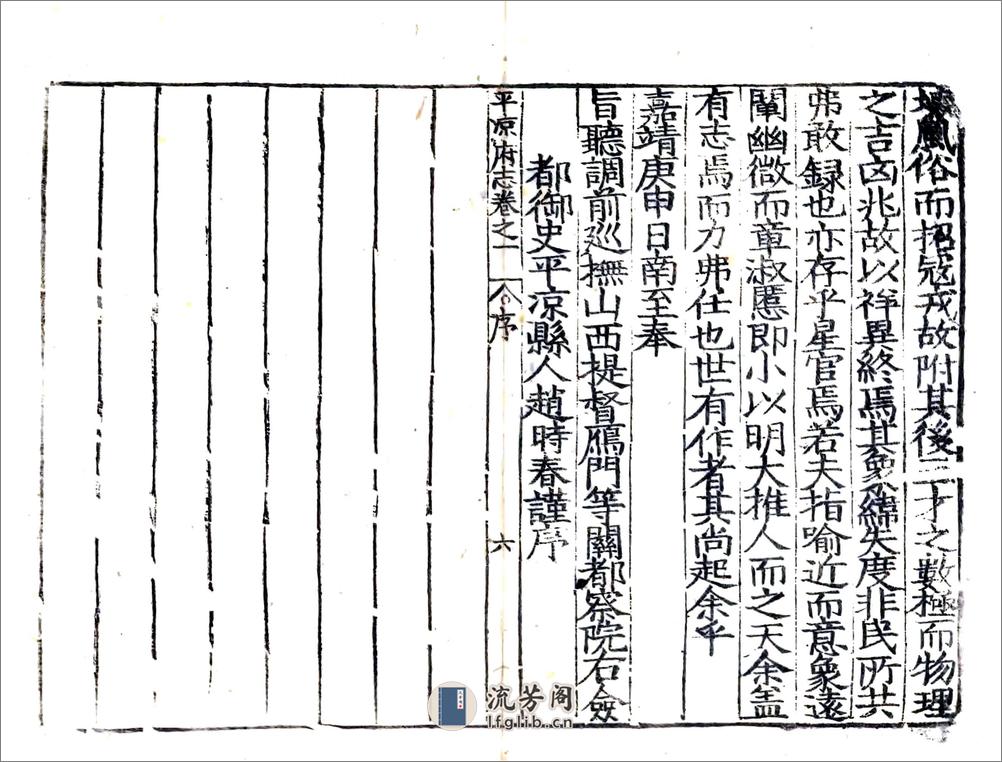 壞風俗而招寇戎故附其後三才之數極而物理
之吉凶兆故以祥異終焉其象緯失度非民所共
弗敢録也亦存乎星官焉若夫指喻近而意象遠
闡幽微而章淑慝即小以明大推人而之天余盖
有志焉而力弗任也世有作者其尚起余乎
嘉靖庚申日南至奉
旨聽調前廵撫山西提督鴈門等關都察院右僉
都御史平凉縣人趙時春謹序
平凉府志卷之一
序
六
流芳阁
lfglib.cn